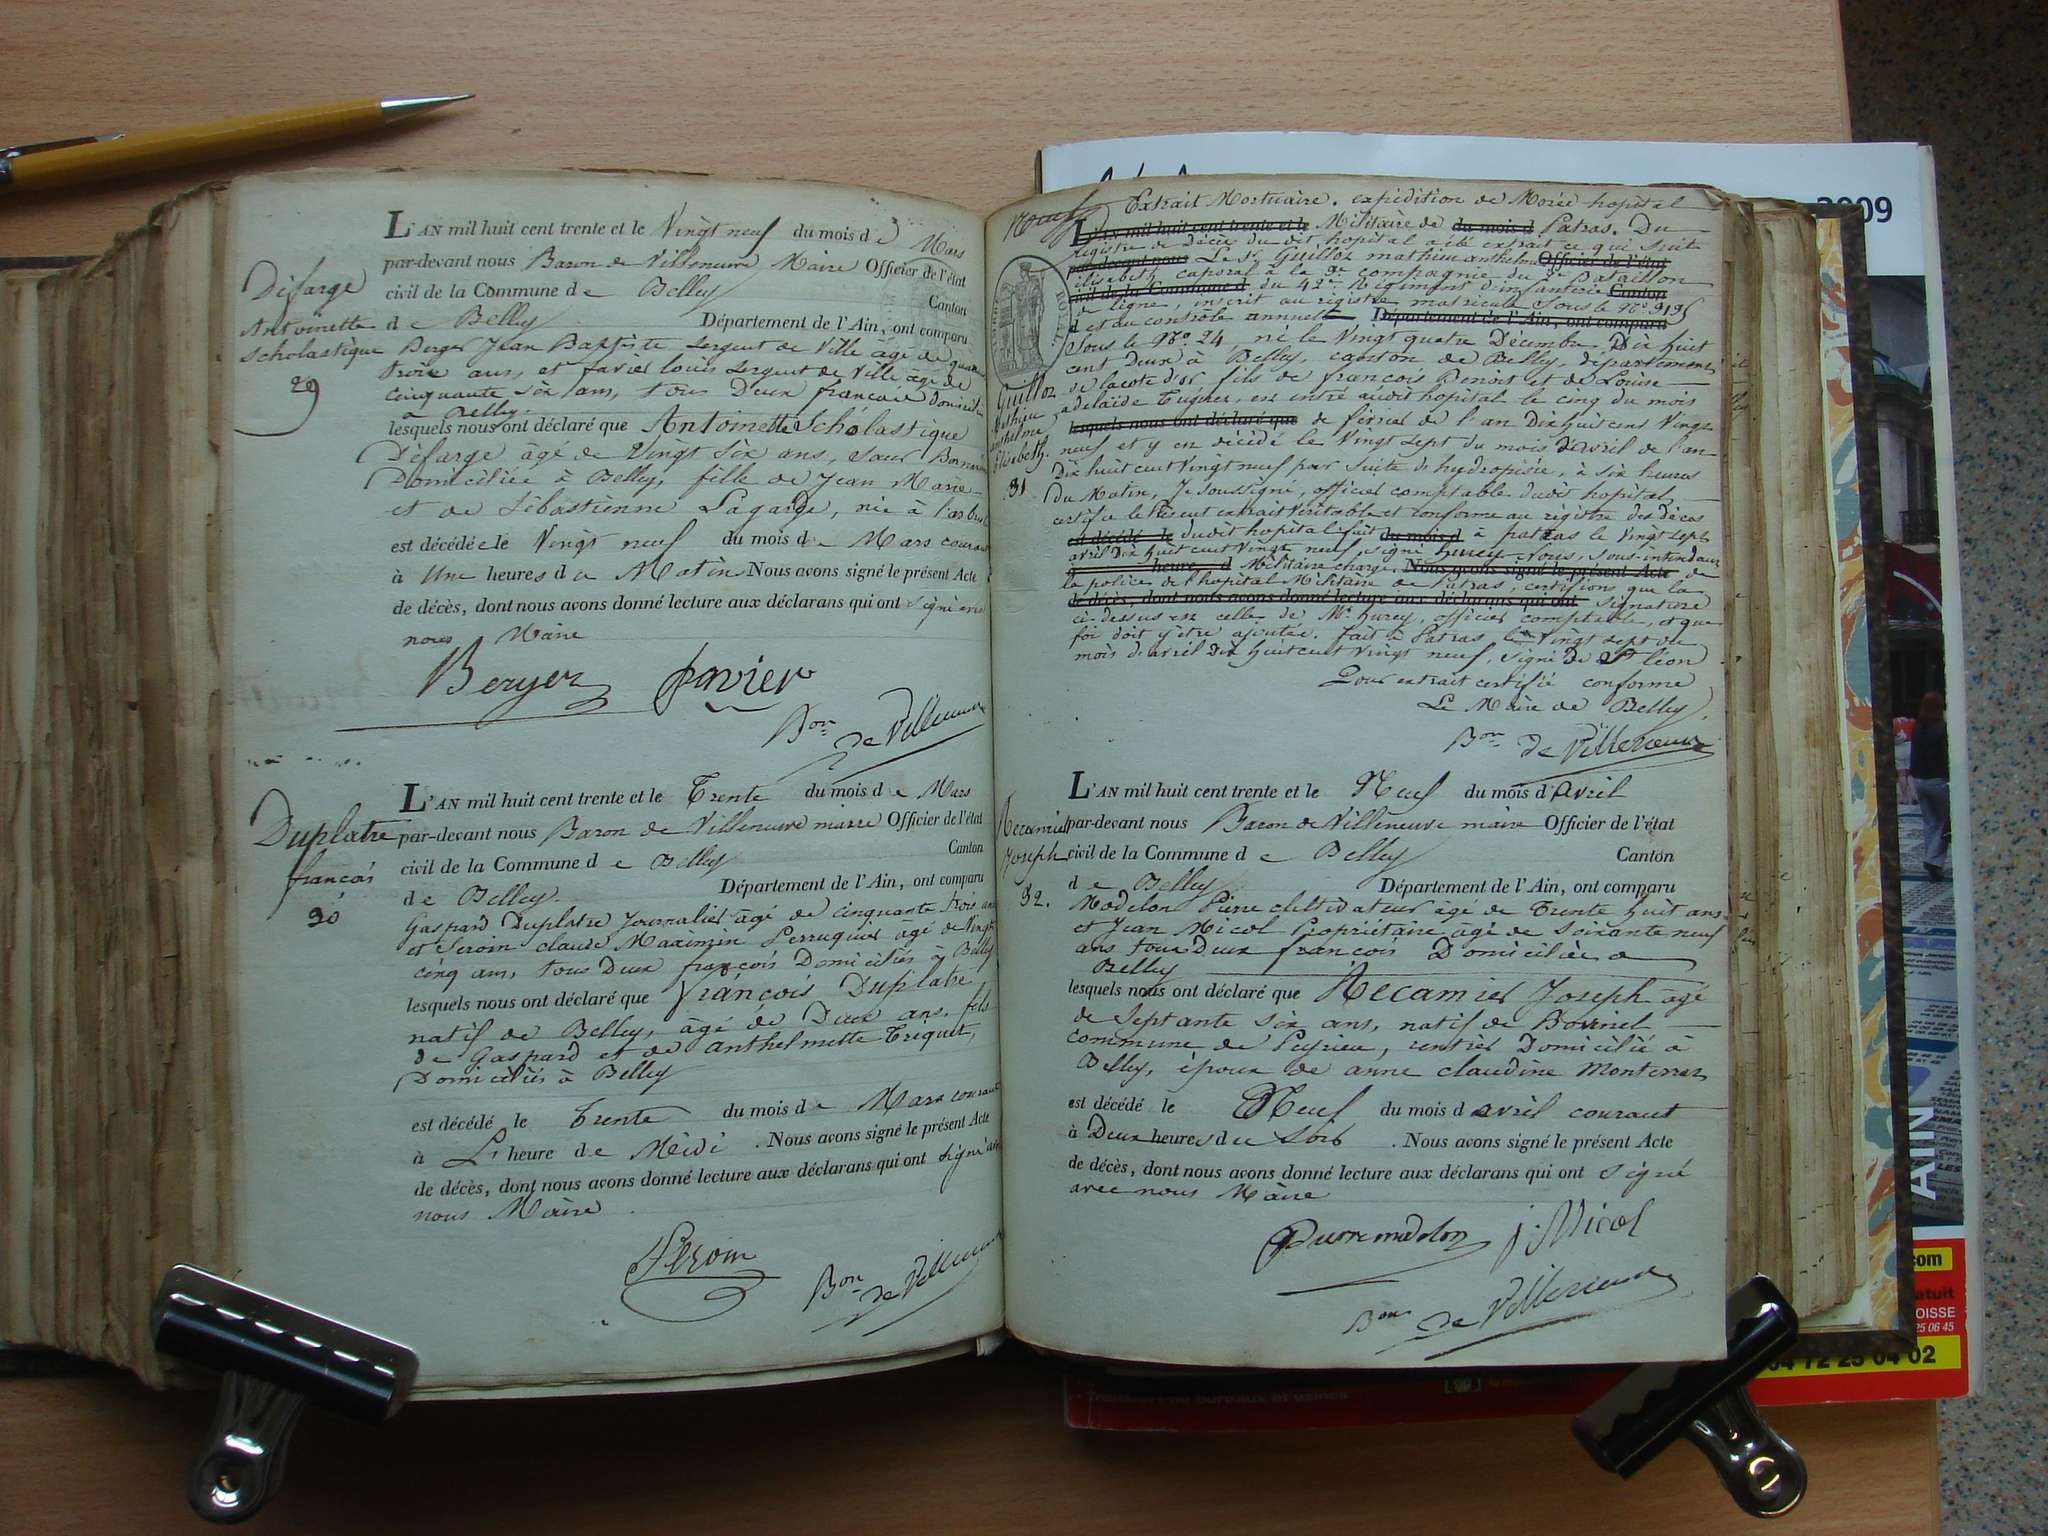 Défarge
Antoinette
Scholastique
29
L'AN mil huit cent trente et le Vingt neuf du mois de Mars
par-devant nous Baron de Villeneuve Maire Officier de l'état
civil de la Commune de Belley Canton
de Belley Département de l'Ain, ont comparu
Berger Jean Baptiste Sergent de Ville âgé de
trois ans, et favier louis Sergent de Ville âgé de
cinquante six ans, tous Deux français
à Belley.
lesquels nous ont déclaré que Antoinette Scholastique
Défarge âgé de Vingt Six ans, Sœur
Domiciliée à Belley, fille de Jean Marie
et de Sébastienne Lagarde, née à
est décédée le Vingt neuf du mois de Mars courant
à Une heures du Matin Nous avons signé le présent Acte
de décès, dont nous avons donné lecture aux déclarans qui ont signé avec
nous Maire
Berger favier
Bon de Villeneuve
Duplatre
françois
30
L'AN mil huit cent trente et le Trente du mois de Mars
par-devant nous Baron de Villeneuve maire Officier de l'état
civil de la Commune de Belley Canton
de Belley. Département de l'Ain, ont comparu
Gaspard Duplatre Journalier âgé de cinquante trois ans
et Seroin claude Maximin Perruquier âgé de Vingt
cinq ans, tous Deux françois Domiciliés à Belley
lesquels nous ont déclaré que François Duplatre
natif de Belley, âgé de Deux ans, fils
de Gaspard et de anthelmette Triquet,
Domiciliés à Belley
est décédé le Trente du mois de Mars courant
à L' heure de Midi . Nous avons signé le présent Acte
de décès, dont nous avons donné lecture aux déclarans qui ont signé avec
nous Maire
Seroin
Bon de Villeneuve
Extrait Mortuaire. expédition de Morée hopital
L'AN mil huit cent trente et le Militaire de du mois d Patras. Du
registre de Décès du dit hopital a été extrait ce qui Suit
par-devant nous Le Sr. Guilloz mathieu anthelme Officier de l'état
élisabeth caporal à la 3e compagnie du 2e Bataillon
civil de la Commune d du 42e Régiment d'infanterie Canton
de ligne, inscrit au registre matricule Sous le No. 9195
d et au contrôle annuel Département de l'Ain, ont comparu
Sous le No. 24, né le Vingt quatre Décembre Dix huit
cent Deux à Belley, canton de Belley, département
de lacote d'or, fils de françois Benoit et de Louise
adelaïde Tugnier, est entré audit hopital le cinq du mois
lesquels nous ont déclaré que de février de l'an Dix huit cent Vingt
neuf et y en décédé le Vingt Sept du mois d'avril de l'an
Dix huit cent Vingt neuf par Suite d'hydropisie, à Six heures
Du Matin, Je Soussigné, officier comptable dudit hopital,
certifie le présent extrait Véritable et conforme au registre des décès
est décédé le dudit hopital fait du mois d à patras le Vingt Sept
avril Dix huit cent Vingt neuf, signé hurey. Nous, Sous-intendant
à heure d Militaire chargé Nous avons signé le présent Acte de
la police de l'hopital Militaire de Patras, certifions que la
de décès, dont nous avons donné lecture aux déclarans qui ont signature
ci-dessus est celle de Mr. hurey, officier comptable, et que
foi doit y être ajoutée. fait à Patras le Vingt Sept du
mois d'avril Dix huit cent Vingt neuf, signé De St léon
Pour extrait certifié conforme
Le Maire de Belley,
Bon de Villeneuve
Guilloz
Mathieu
anthelme
Elisabeth.
31
Récamier
Joseph
32.
L'AN mil huit cent trente et le Neuf du mois d'avril
par-devant nous Baron de Villeneuve maire Officier de l'état
civil de la Commune de Belley Canton
de Belley Département de l'Ain, ont comparu
Modelon Pierre cultivateur âgé de Trente huit ans
et Jean Micol Propriétaire âgé de Soixante neuf
ans tous Deux françois Domiciliés à
Belley
lesquels nous ont déclaré que Récamier Joseph âgé
de Septante Six ans, natif de
commune de Peyrieu, rentier Domicilié à
Belley, époux de anne claudine Monterrat
est décédé le Neuf du mois d avril courant
à Deux heures du Soir . Nous avons signé le présent Acte
de décès, dont nous avons donné lecture aux déclarans qui ont signé
avec nous Maire
Pierre modolon j. Micol
Bon de Villeneuve
2009
AIN
.com
04 72 25 04 02